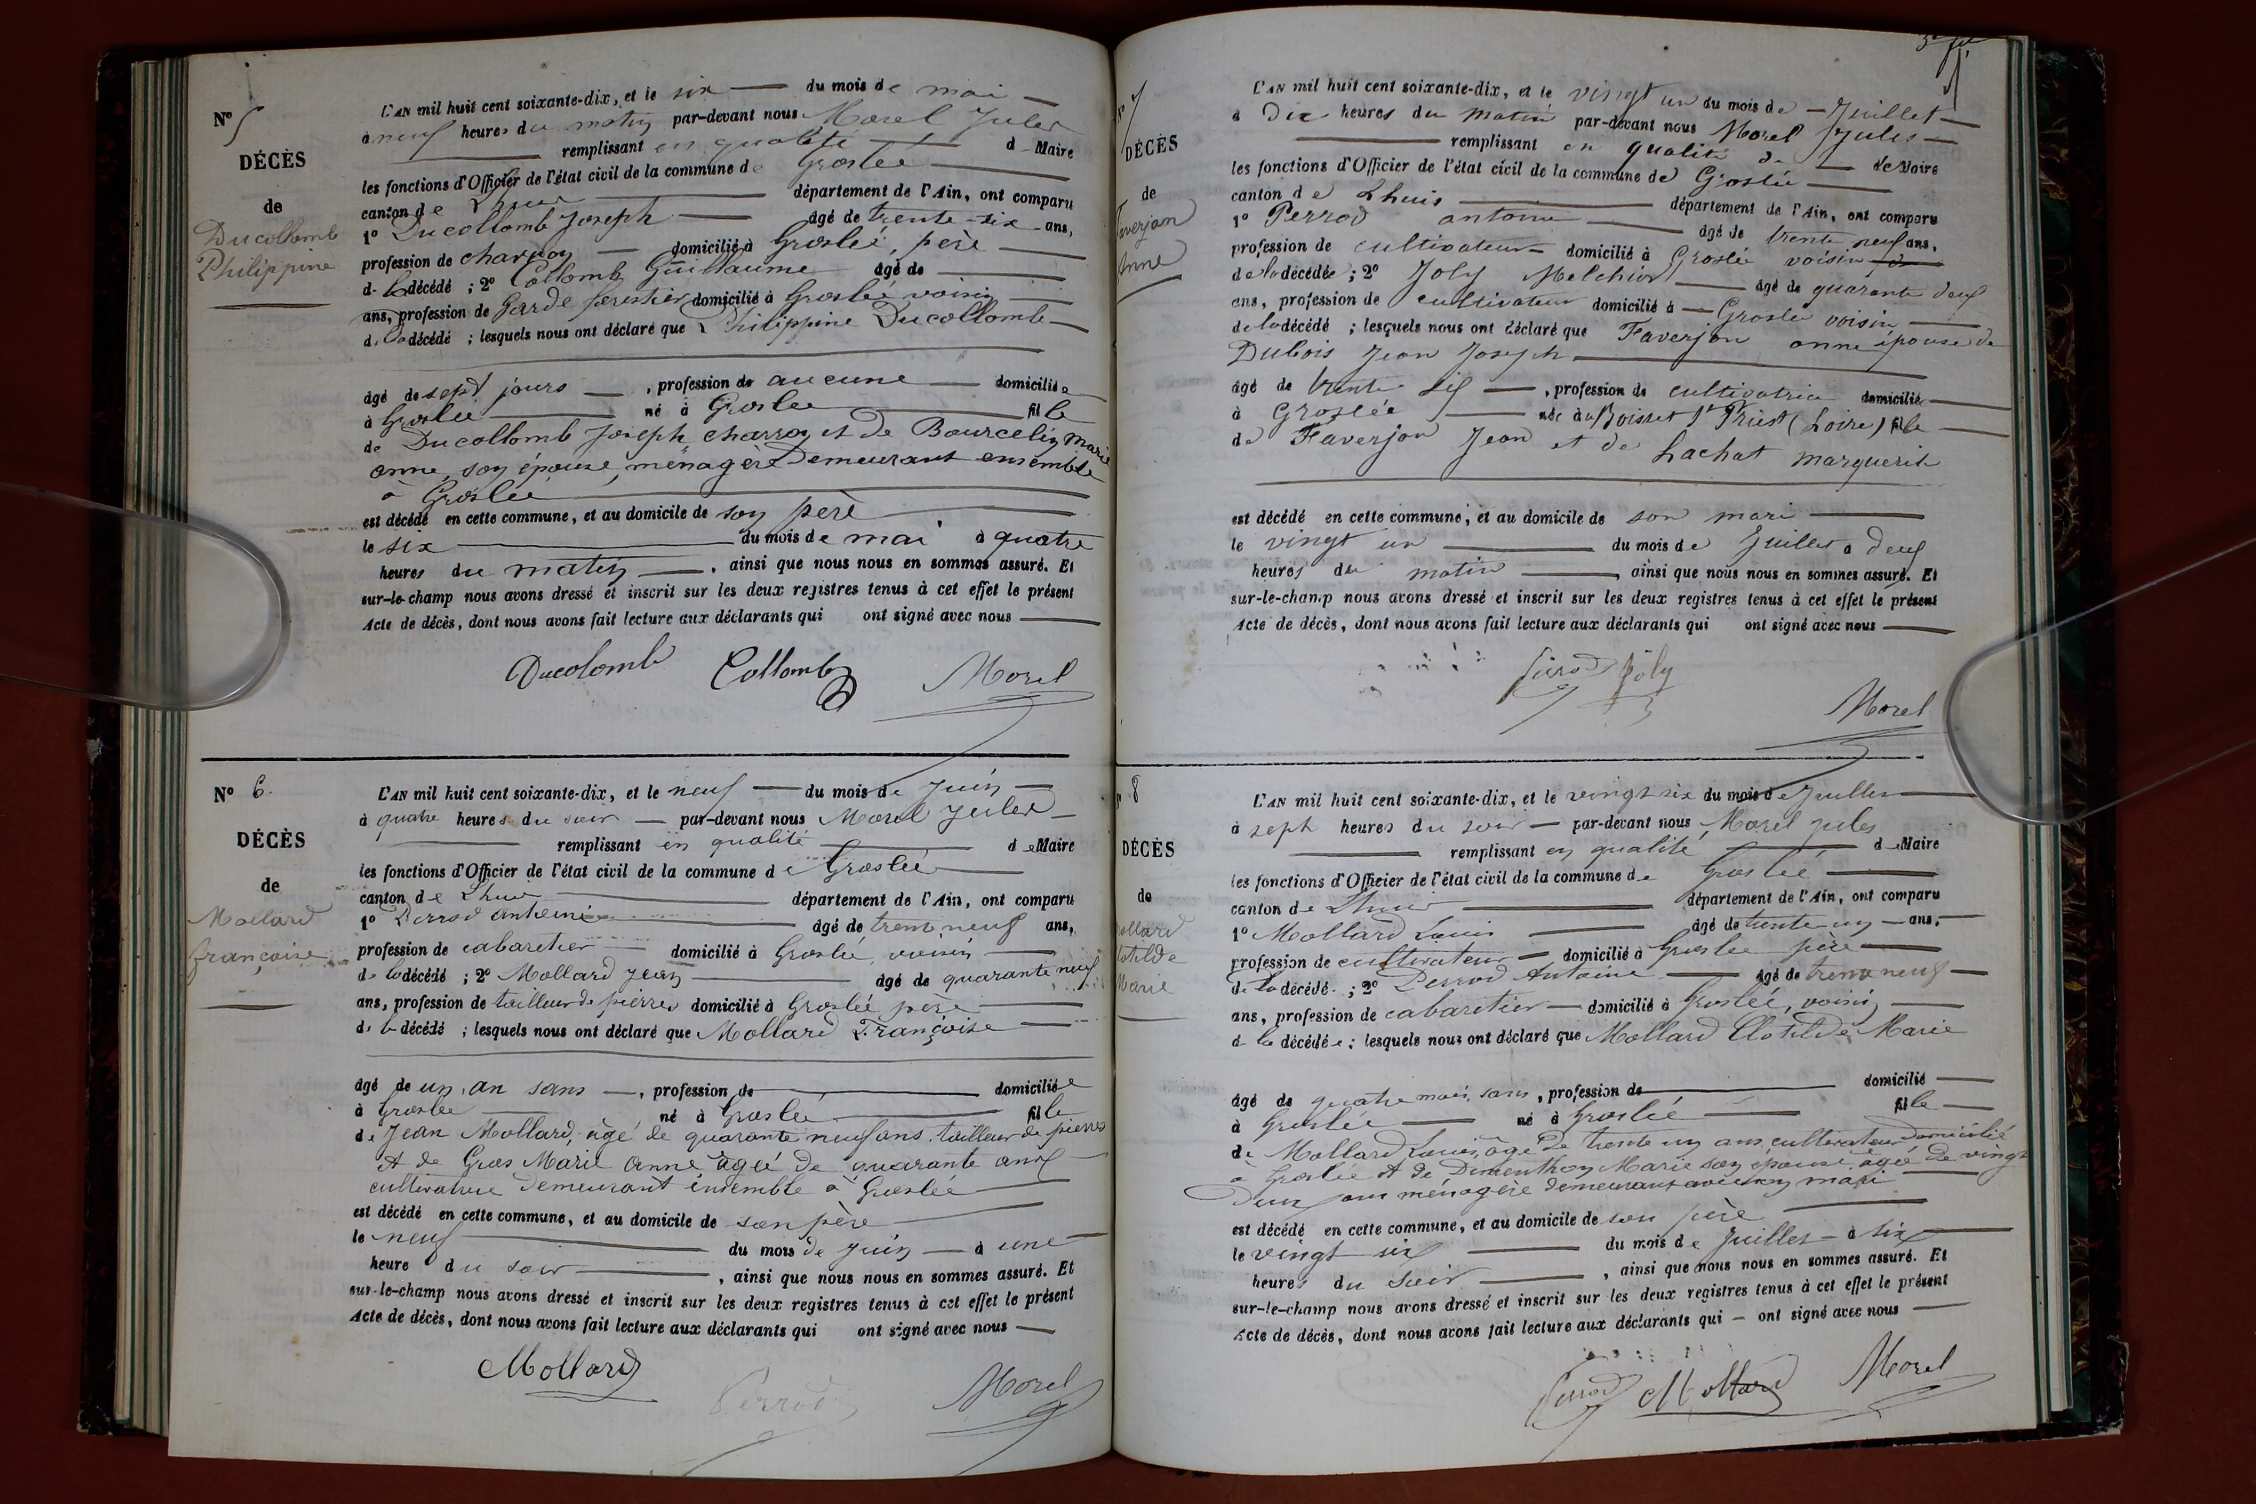 N° 5
DÉCÈS
de
Ducollomb
Philippine
L'AN mil huit cent soixante-dix, et le six du mois de mai
à neuf heures du matin par-devant nous Morel Jules
remplissant en qualité d Maire
les fonctions d'Officier de l'état civil de la commune de Groslée
canton de Lhuis département de l'Ain, ont comparu
1° Ducollomb Joseph âgé de trente-six ans,
profession de charron domicilié à Groslée, père
de la décédé ; 2° Collomb Guillaume âgé de
ans, profession de Garde forestier domicilié à Groslée voisin
de la décédé ; lesquels nous ont déclaré que Philippine Ducollomb
âgé de sept jours , profession de aucune domiciliée
à Groslée né à Groslée fille
de Ducollomb Joseph charron et de Bourcelin Marie
anne, son épouse, ménagère Demeurant ensemble
à Groslée
est décédé en cette commune, et au domicile de son père
le six du mois de mai à quatre
heures du matin , ainsi que nous nous en sommes assuré. Et
sur-le-champ nous avons dressé et inscrit sur les deux registres tenus à cet effet le présent
Acte de décès, dont nous avons fait lecture aux déclarants qui ont signé avec nous
Ducolomb Collomb Morel
N° 6
DÉCÈS
de
Mollard
françoise
L'AN mil huit cent soixante-dix, et le neuf du mois de Juin
à quatre heures du soir par-devant nous Morel Jules
remplissant en qualité de Maire
les fonctions d'Officier de l'état civil de la commune de Groslée
canton de Lhuis département de l'Ain, ont comparu
1° Perrod Antoine âgé de trente neuf ans,
profession de cabaretier domicilié à Groslée, voisin
de la décédé ; 2° Mollard Jean âgé de quarante neuf
ans, profession de tailleur de pierres domicilié à Groslée père
de la décédé ; lesquels nous ont déclaré que Mollard Françoise
âgé de un an sans , profession de domiciliée
à Groslée né à Groslée fille
de Jean Mollard, âgé de quarante neuf ans, tailleur de pierres
et de Gros Marie Anne âgée de quarante ans
cultivatrice Demeurant ensemble à Groslée
est décédé en cette commune, et au domicile de son père
le neuf du mois de Juin à une
heure du soir , ainsi que nous nous en sommes assuré. Et
sur-le-champ nous avons dressé et inscrit sur les deux registres tenus à cet effet le présent
Acte de décès, dont nous avons fait lecture aux déclarants qui ont signé avec nous
Mollard Perrod Morel
N° 7
DÉCÈS
de
Faverjon
Anne
L'AN mil huit cent soixante-dix, et le vingt un du mois de Juillet
à Dix heures du matin par-devant nous Morel Jules
remplissant en qualité de de Maire
les fonctions d'Officier de l'état civil de la commune de Groslée
canton de Lhuis département de l'Ain, ont comparu
1° Perrod antoine âgé de trente neuf ans,
profession de cultivateur domicilié à Groslée voisin
de la décédée ; 2° Joly Melchior âgé de quarante deux
ans, profession de cultivateur domicilié à Groslée voisin
de la décédé ; lesquels nous ont déclaré que Faverjon anne épouse de
Dubois Jean Joseph
âgé de trente six , profession de cultivatrice domicilié
à Groslée née à Boisset St Priest (Loire) fille
de Faverjon Jean et de Lachat marguerite
est décédé en cette commune, et au domicile de son mari
le vingt un du mois de Juillet à deux
heures du matin , ainsi que nous nous en sommes assuré. Et
sur-le-champ nous avons dressé et inscrit sur les deux registres tenus à cet effet le présent
Acte de décès, dont nous avons fait lecture aux déclarants qui ont signé avec nous
Perrod Joly
Morel
8
DÉCÈS
de
ollard
lotilde
Marie
L'AN mil huit cent soixante-dix, et le vingt six du mois de Juillet
à sept heures du soir par-devant nous Morel Jules
remplissant en qualité de Maire
les fonctions d'Officier de l'état civil de la commune de Groslée
canton de Lhuis département de l'Ain, ont comparu
1° Mollard Louis âgé de trente un ans,
profession de cultivateur domicilié à Groslée père
de la décédé ; 2° Perrod Antoine âgé de trente neuf
ans, profession de cabaretier domicilié à Groslée, voisin
de la décédée ; lesquels nous ont déclaré que Mollard Clotilde Marie
âgé de quatre mois, sans , profession de domicilié
à Groslée né à Groslée fille
de Mollard Louis, âgé de trente un ans, cultivateur domicilié
à Groslée et de Dimenthon Marie son épouse âgée de vingt
Deux ans ménagère demeurant avec son mari
est décédé en cette commune, et au domicile de son père
le vingt six du mois de Juillet à six
heures du soir , ainsi que nous nous en sommes assuré. Et
sur-le-champ nous avons dressé et inscrit sur les deux registres tenus à cet effet le présent
Acte de décès, dont nous avons fait lecture aux déclarants qui ont signé avec nous
Perrod Mollard Morel